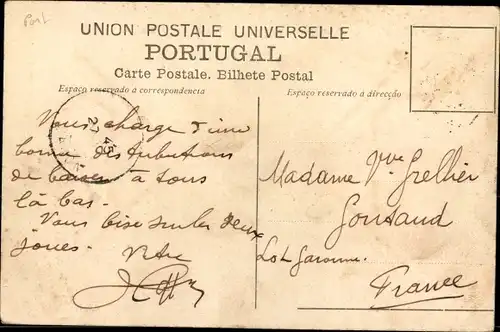 Port
UNION POSTALE UNIVERSELLE
PORTUGAL
Carte Postale. Bilhete Postal
Espaço reservado á correspondencia
Espaço reservado á direcção
Vous charge d'une
bonne distribution
de baises à tous
là bas.
Vous bise sur les deux
joues.
Votre
Madame Vve Grellier
Gontaud
Lot Garonne.
France